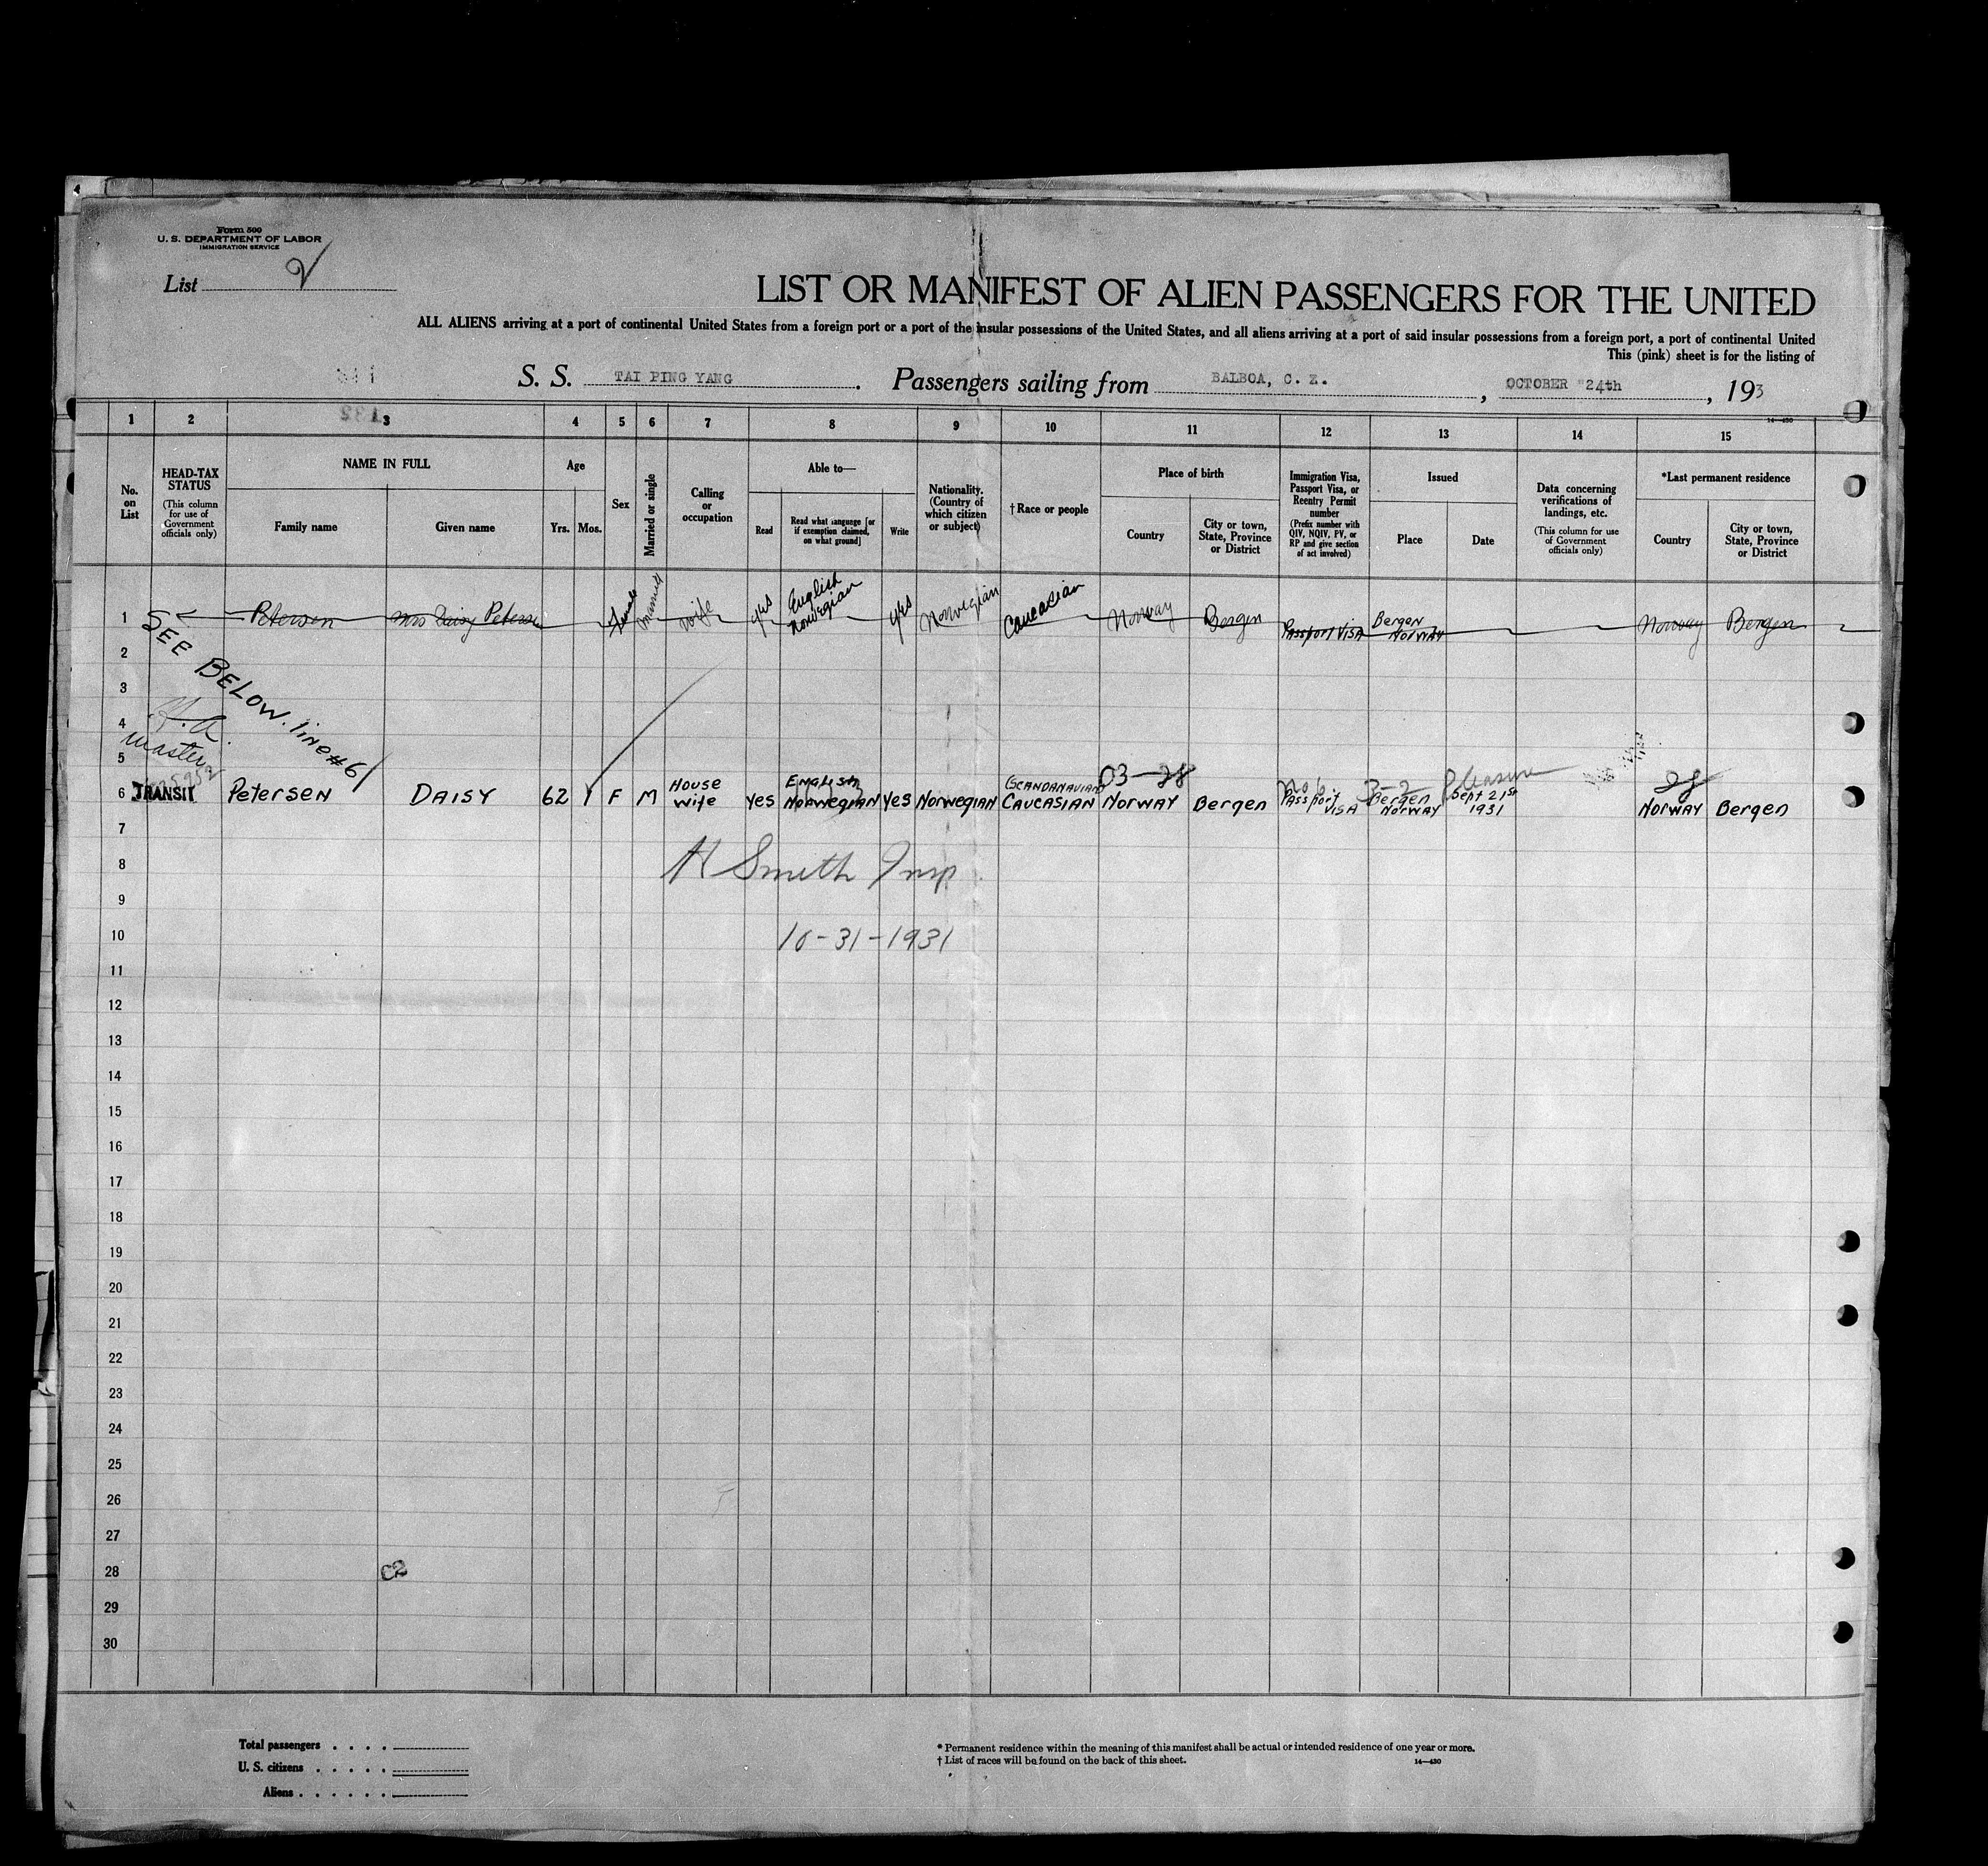 Form 500
U. S. DEPARTMENT OF LABOR
IMMIGRATION SERVICE
List 2
LIST OR MANIFEST OF ALIEN PASSENGERS FOR THE UNITED
ALL ALIENS arriving at a port of continental United States from a foreign port or a port of the insular possessions of the United States, and all aliens arriving at a port of said insular possessions from a foreign port, a port of continental United
This (pink) sheet is for the listing of
S. S. TAI PING YANG. Passengers sailing from BALBOA, C. Z., OCTOBER 24th, 193
1 2 3 4 5 6 7 8 9 10 11 12 13 14 15
14—430
No. on List
HEAD-TAX STATUS
(This column for use of Government officials only)
NAME IN FULL
Family name
Given name
Age
Yrs.
Mos.
Sex
Married or single
Calling or occupation
Able to—
Read
Read what language [or if exemption claimed, on what ground]
Write
Nationality. (Country of which citizen or subject)
† Race or people
Place of birth
Country
City or town, State, Province or District
Immigration Visa, Passport Visa, or Reentry Permit number
(Prefix number with QIV, NQIV, PV, or RP and give section of act involved)
Issued
Place
Date
Data concerning verifications of landings, etc.
(This column for use of Government officials only)
*Last permanent residence
Country
City or town, State, Province or District
1 Petersen Mrs Daisy Petersen Female married wife yes English Norwegian yes Norwegian Caucasian Norway Bergen Passport VISA Bergen NORWAY Norway Bergen
SEE BELOW. line #6
2
3
4
master
5
03—28 3-2 Pleasure 28
6 TRANSIT Petersen DAISY 62 F M House wife Yes English Norwegian Yes Norwegian (SCANDANAVIAN) CAUCASIAN NORWAY Bergen Passport VISA Bergen NORWAY Sept 21st 1931 NORWAY Bergen
7
8 H Smith Insp
9
10 10-31-1931
11
12
13
14
15
16
17
18
19
20
21
22
23
24
25
26
27
28 C2
29
30
Total passengers . . . .
U. S. citizens . . . . .
Aliens . . . . . .
* Permanent residence within the meaning of this manifest shall be actual or intended residence of one year or more.
† List of races will be found on the back of this sheet.
14—430